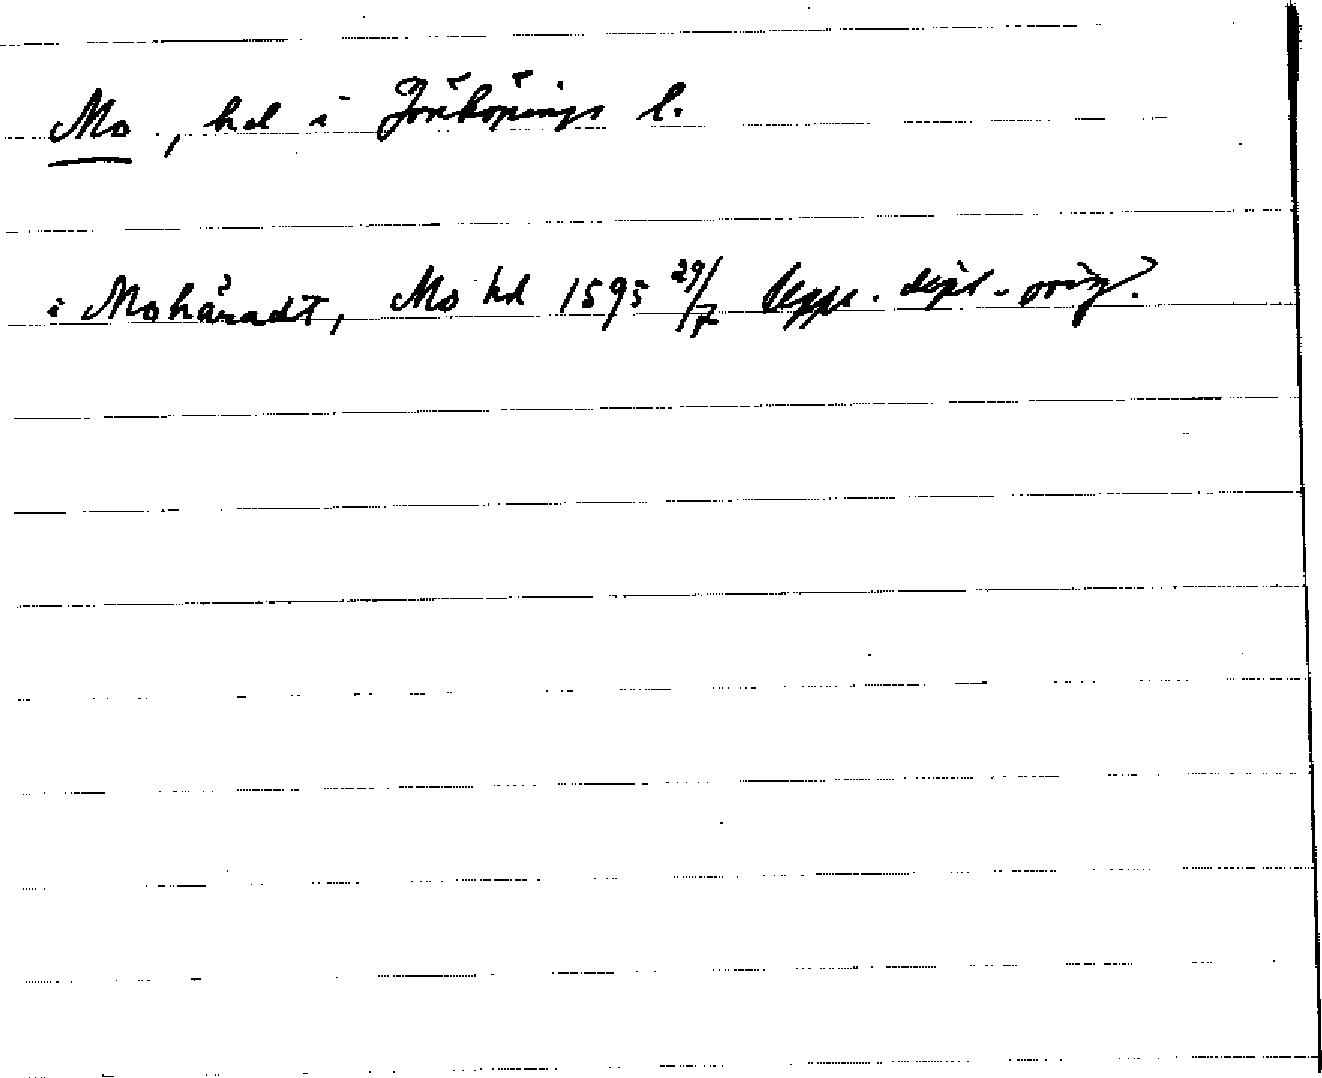 Mo, hd i Jönköpings l.
i Mohäradt, Mo hd 1595 29/7 Uppl. dipl-orig.